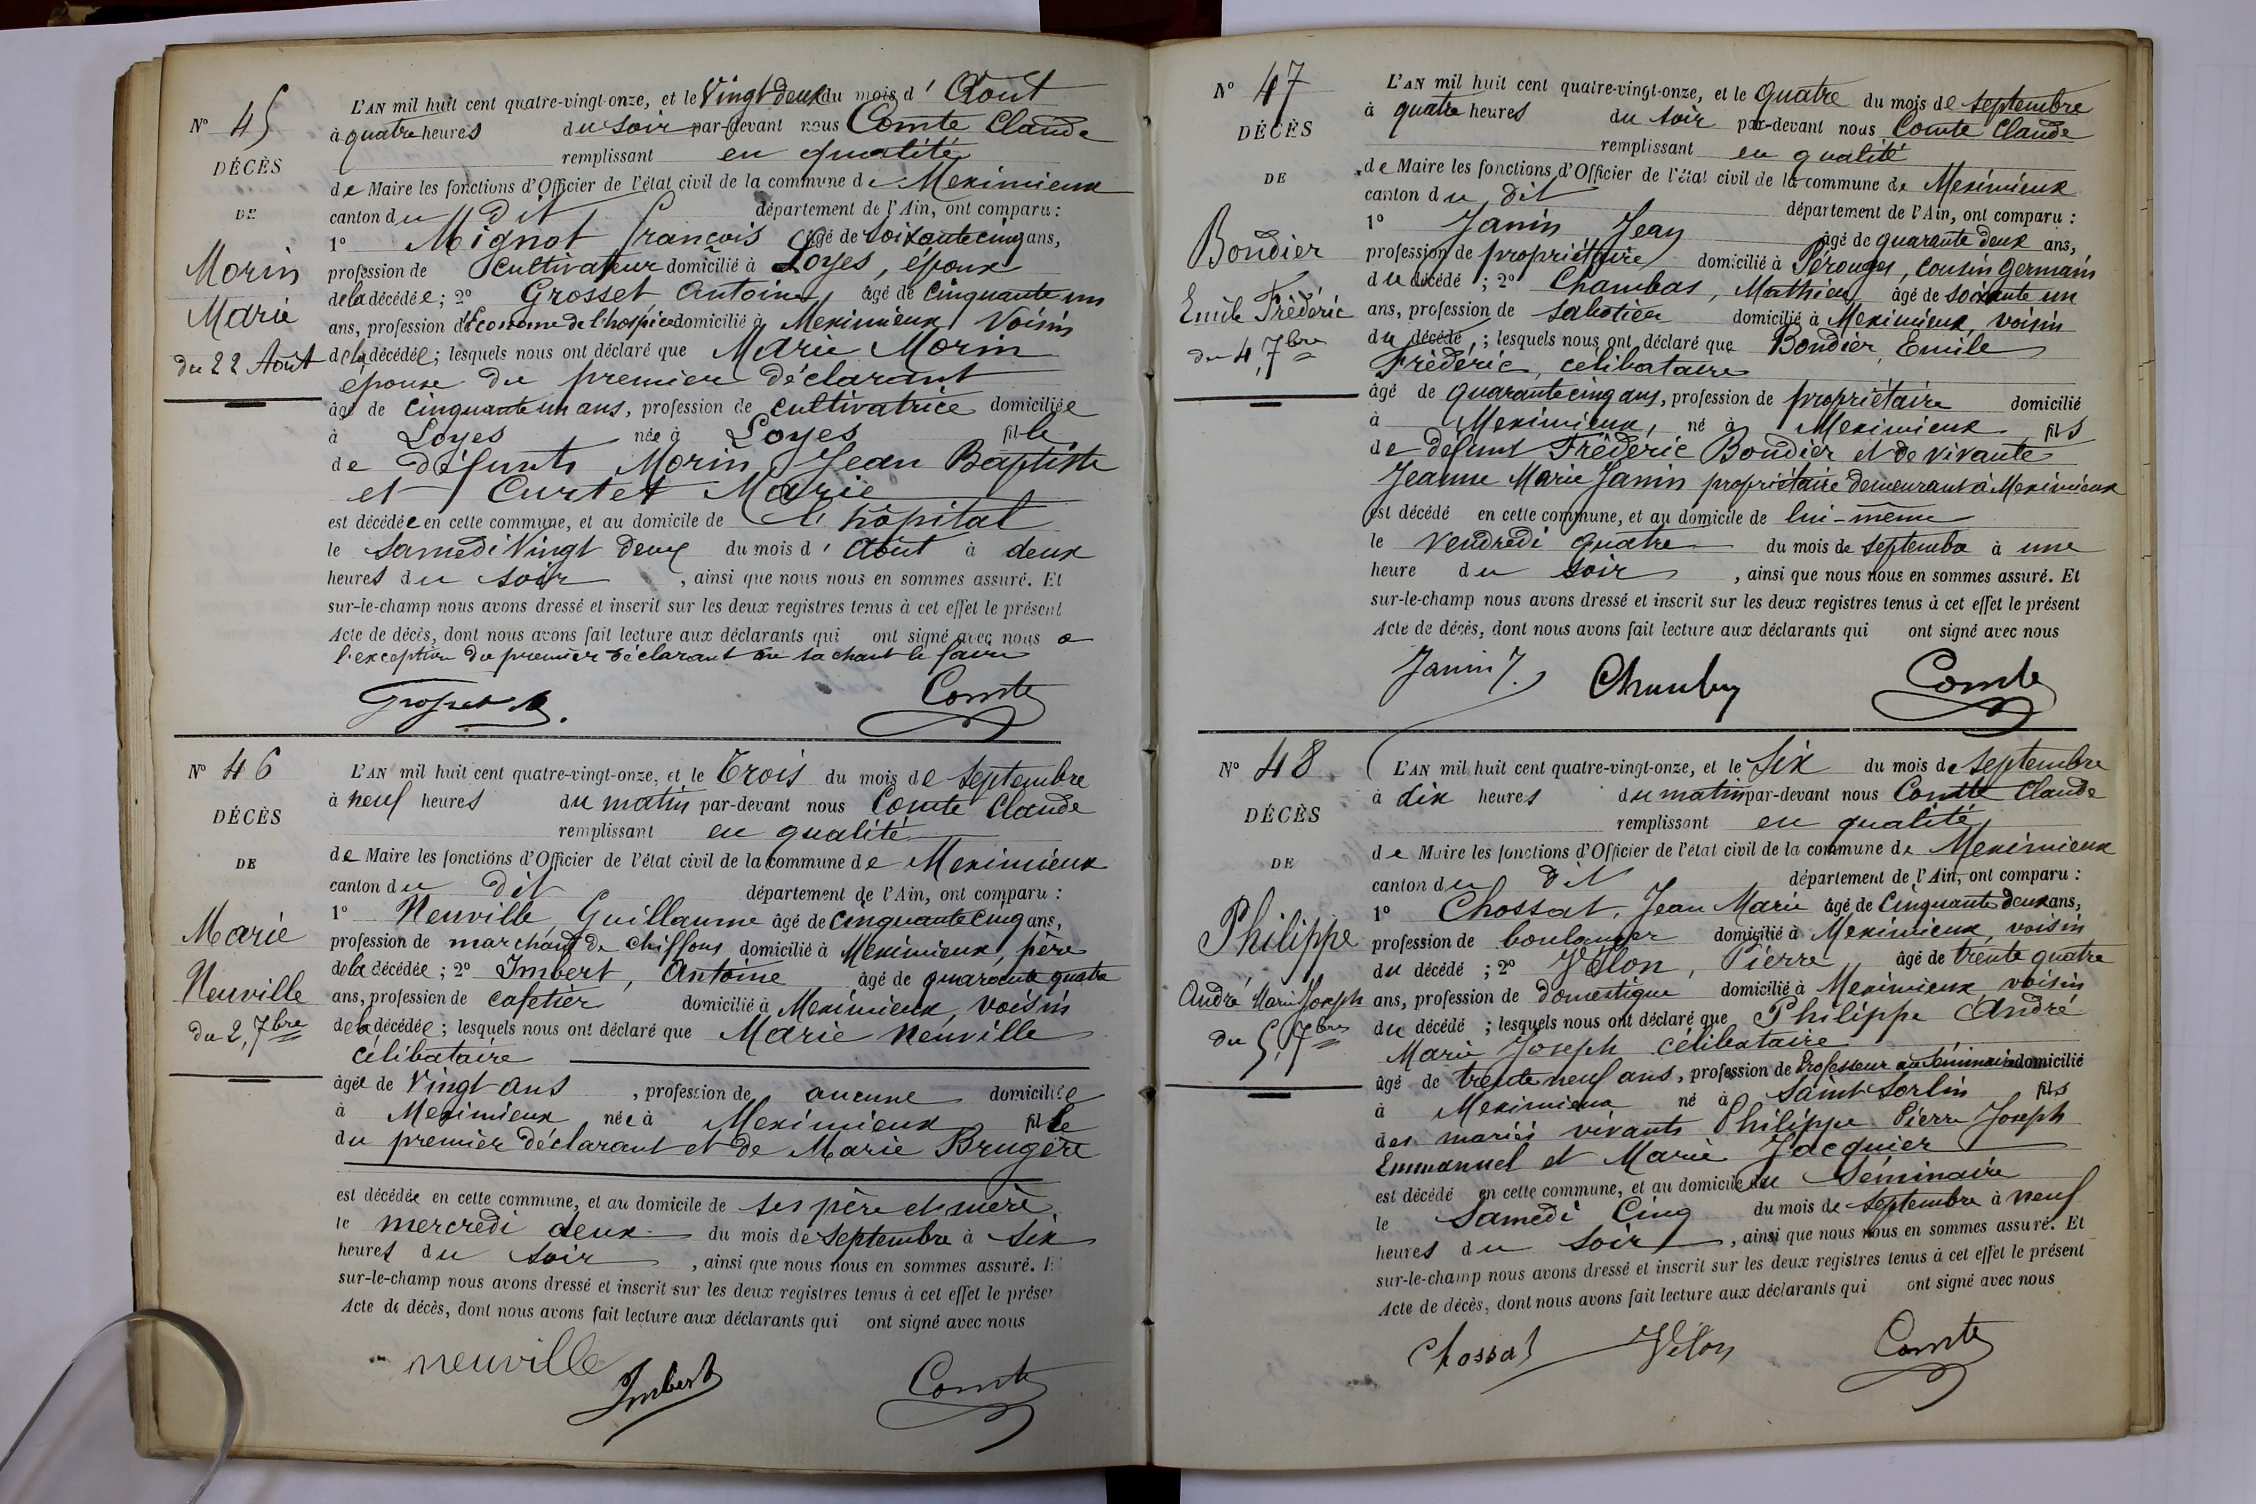 N° 45
DÉCÈS
DE
Morin
Marie
du 22 Août
L'AN mil huit cent quatre-vingt-onze, et le Vingt deux du mois d' Août
à quatre heures du soir par-devant nous Comte Claude
remplissant en qualité
de Maire les fonctions d'Officier de l'état civil de la commune de Meximieux
canton du dit département de l'Ain, ont comparu :
1° Mignot François âgé de soixante cinq ans,
profession de cultivateur domicilié à Loyes, époux
de la décédée ; 2° Grosset Antoine, âgé de cinquante un
ans, profession d'économe de l'hospice domicilié à Meximieux Voisin
de la décédée ; lesquels nous ont déclaré que Marie Morin
épouse du premier déclarant
âgé de cinquante un ans, profession de cultivatrice domiciliée
à Loyes née à Loyes fille
de défunts Morin Jean Baptiste
et Curtet Marie
est décédée en cette commune, et au domicile de l'hôpital
le Samedi Vingt deux du mois d' Août à deux
heures du soir, ainsi que nous nous en sommes assuré. Et
sur-le-champ nous avons dressé et inscrit sur les deux registres tenus à cet effet le présent
Acte de décès, dont nous avons fait lecture aux déclarants qui ont signé avec nous a
l'exception du premier déclarant ne sachant le faire
Grosset A. Comte
N° 46
DÉCÈS
DE
Marie
Neuville
du 2, 7bre
L'AN mil huit cent quatre-vingt-onze, et le Trois du mois de septembre
à neuf heures du matin par-devant nous Comte Claude
remplissant en qualité
de Maire les fonctions d'Officier de l'état civil de la commune de Meximieux
canton du dit département de l'Ain, ont comparu :
1° Neuville Guillaume âgé de cinquante cinq ans,
profession de marchand de chiffons domicilié à Meximieux, père
de la décédée ; 2° Imbert, Antoine âgé de quarante quatre
ans, profession de cafetier domicilié à Meximieux, voisin
de la décédée ; lesquels nous ont déclaré que Marie Neuville
célibataire
âgée de Vingt ans, profession de aucune domiciliée
à Meximieux née à Meximieux fille
du premier déclarant et de Marie Brugère
est décédée en cette commune, et au domicile de ses père et mère
le mercredi deux du mois de septembre à six
heures du soir, ainsi que nous nous en sommes assuré. E
sur-le-champ nous avons dressé et inscrit sur les deux registres tenus à cet effet le préser
Acte de décès, dont nous avons fait lecture aux déclarants qui ont signé avec nous
neuville Imbert Comte
N° 47
DÉCÈS
DE
Bondier
Emile Frédéric
du 4, 7bre
L'AN mil huit cent quatre-vingt-onze, et le Quatre du mois de septembre
à quatre heures du soir par-devant nous Comte Claude
remplissant en qualité
de Maire les fonctions d'Officier de l'état civil de la commune de Meximieux
canton du dit département de l'Ain, ont comparu :
1° Janin Jean âgé de quarante deux ans,
profession de propriétaire domicilié à Pérouges, cousin germain
du décédé ; 2° Chambas, Mathieu âgé de soixante un
ans, profession de sabotier domicilié à Meximieux, voisin
du décédé, ; lesquels nous ont déclaré que Bondier, Emile
Frédéric, célibataire
âgé de quarante cinq ans, profession de propriétaire domicilié
à Meximieux, né à Meximieux fils
de defunt Frédéric Bondier et de vivante
Jeanne Marie Janin propriétaire demeurant à Meximieux
est décédé en cette commune, et au domicile de lui-même
le vendredi quatre du mois de septembre à une
heure du soir, ainsi que nous nous en sommes assuré. Et
sur-le-champ nous avons dressé et inscrit sur les deux registres tenus à cet effet le présent
Acte de décès, dont nous avons fait lecture aux déclarants qui ont signé avec nous
Janin J. Comte
N° 48
DÉCÈS
DE
Philippe
André Marie Joseph
du 5, 7bre
L'AN mil huit cent quatre-vingt-onze, et le Six du mois de septembre
à dix heures du matin par-devant nous Comte Claude
remplissant en qualité
de Maire les fonctions d'Officier de l'état civil de la commune de Meximieux
canton du dit département de l'Ain, ont comparu :
1° Chossat, Jean Marie âgé de cinquante deux ans,
profession de boulanger domicilié à Meximieux, voisin
du décédé ; 2° Vélon, Pierre âgé de trente quatre
ans, profession de domestique domicilié à Meximieux voisin
du décédé ; lesquels nous ont déclaré que Philippe André
Marie Joseph célibataire
âgé de trente neuf ans, profession de Professeur au Séminaire domicilié
à Meximieux né à Saint Sorlin fils
des mariés vivants Philippe Pierre Joseph
Emmanuel et Marie Jacquier
est décédé en cette commune, et au domicile du Séminaire
le Samedi Cinq du mois de septembre à neuf
heures du soir, ainsi que nous nous en sommes assuré. Et
sur-le-champ nous avons dressé et inscrit sur les deux registres tenus à cet effet le présent
Acte de décès, dont nous avons fait lecture aux déclarants qui ont signé avec nous
Chossat Vélon Comte